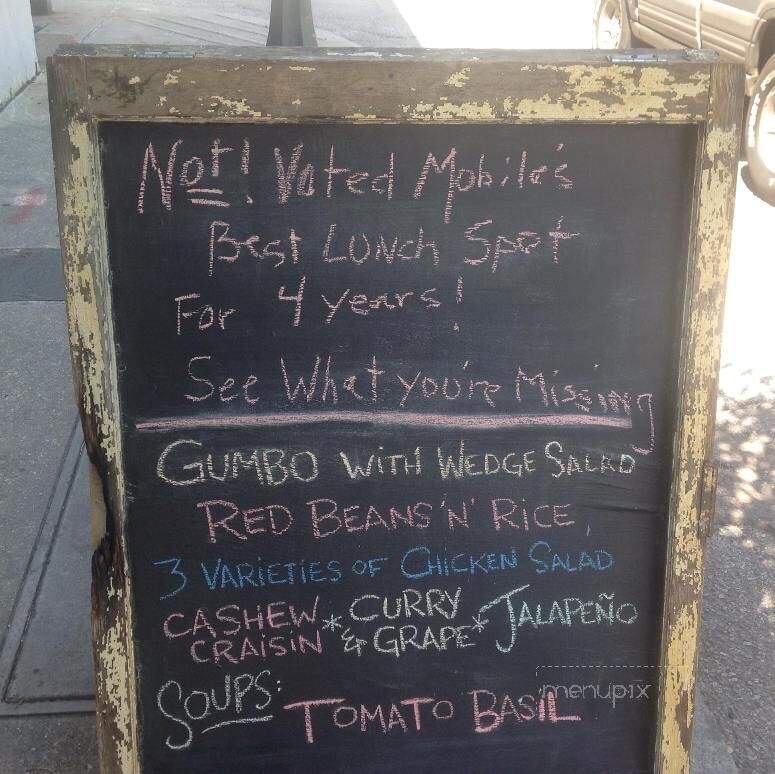 Not! Voted Mobile's
Best Lunch Spot
For 4 years!
See What you're Missing
GUMBO WITH WEDGE SALAD
RED BEANS 'N' RICE,
3 VARIETIES OF CHICKEN SALAD
CASHEW CRAISIN * CURRY & GRAPE * JALAPEÑO
SOUPS: TOMATO BASIL
menupix